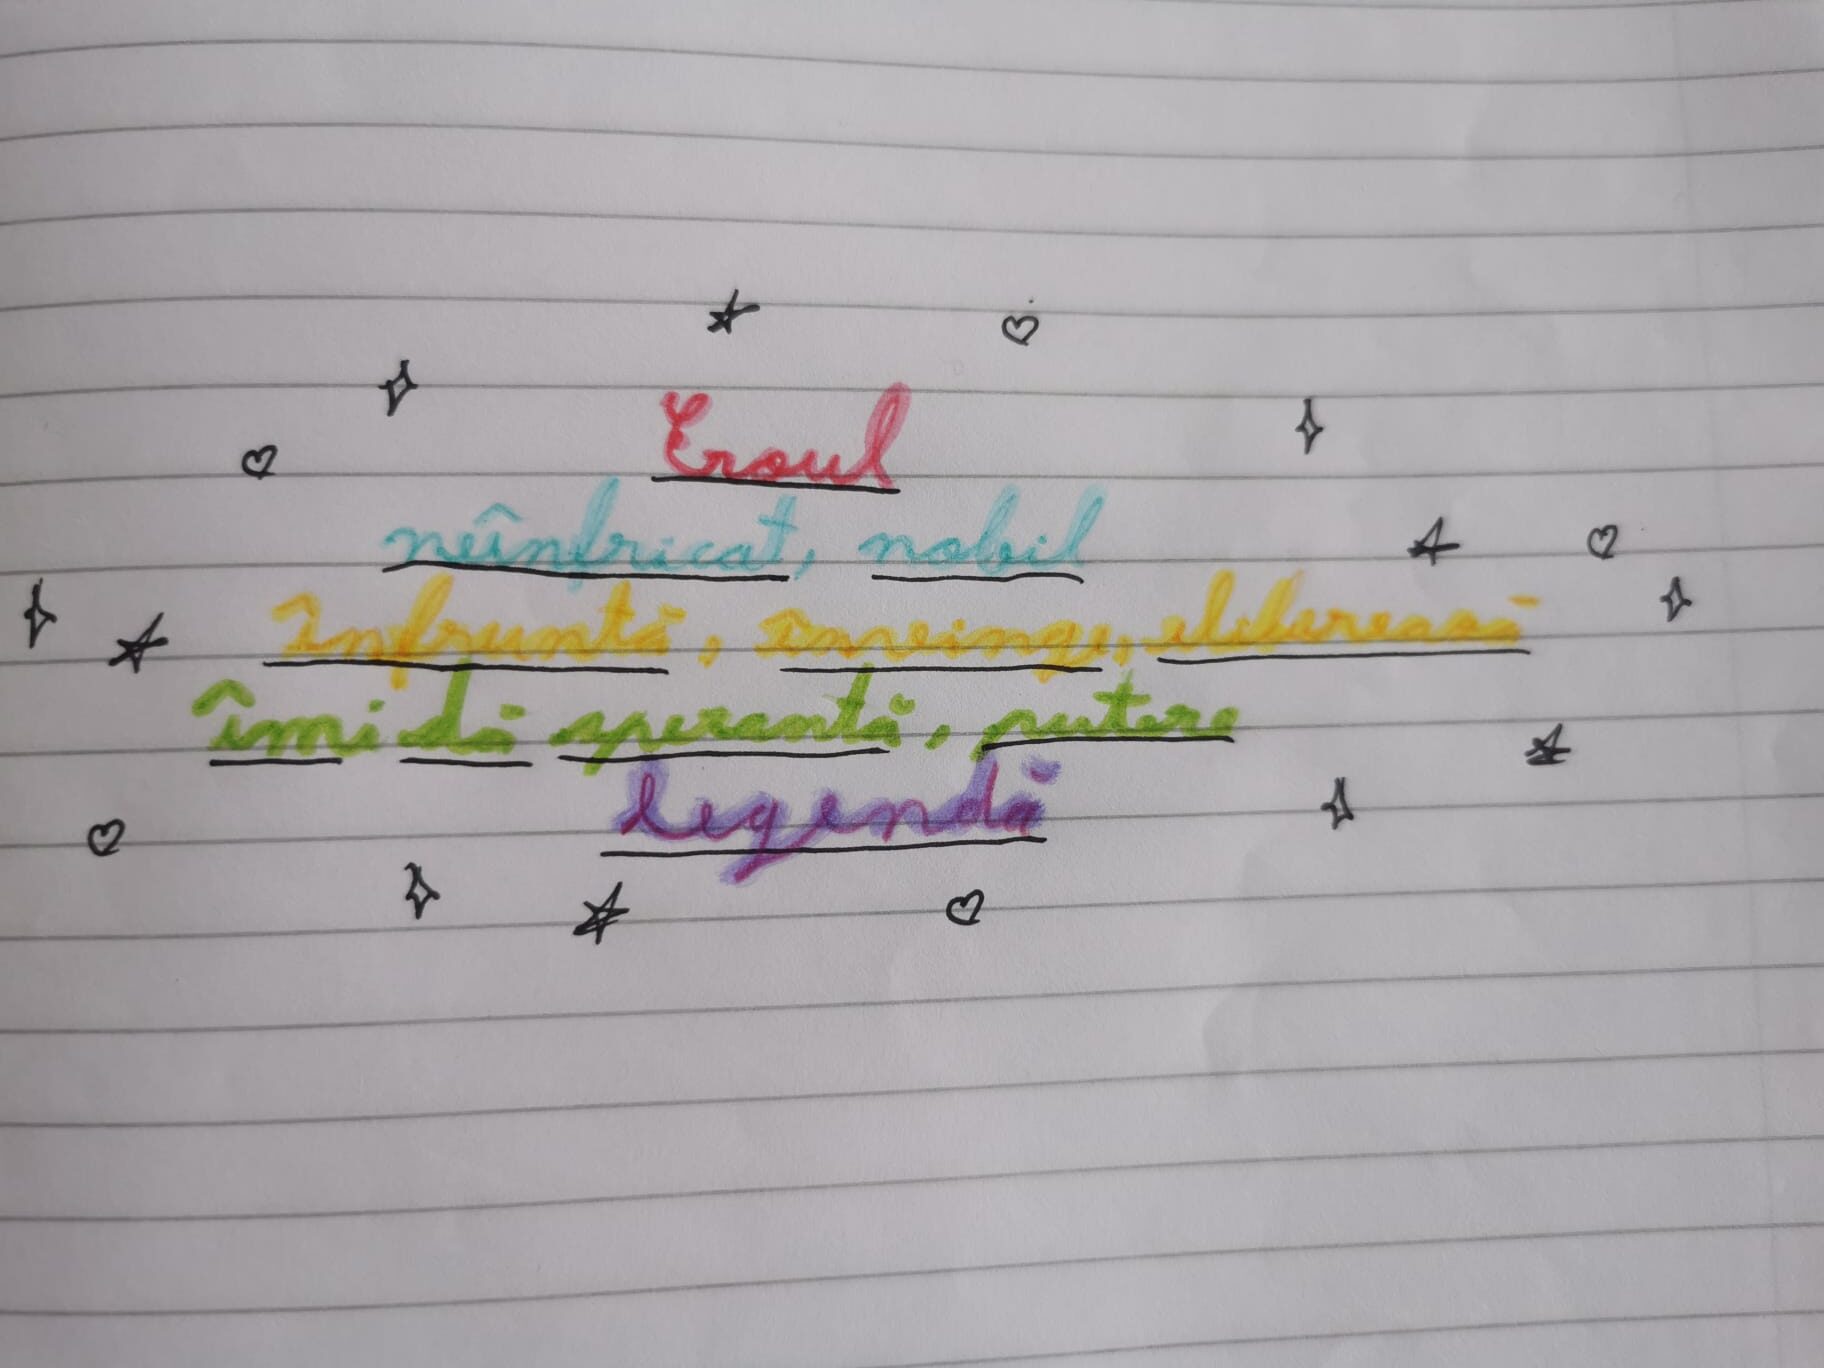 Eroul
neînfricat, nobil
înfruntă, învinge, eliberează
îmi dă speranță, putere
legendă